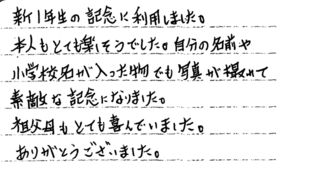 新1年生の記念に利用しました。
本人もとても楽しそうでした。自分の名前や
小学校名が入った物でも写真が撮れて
素敵な記念になりました。
祖父母もとても喜んでいました。
ありがとうございました。